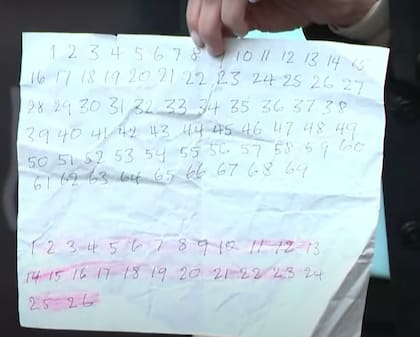 1 2 3 4 5 6 7 8 9 10 11 12 13 14 15
16 17 18 19 20 21 22 23 24 25 26 27
28 29 30 31 32 33 34 35 36 37 38
39 40 41 42 43 44 45 46 47 48 49
50 51 52 53 54 55 56 57 58 59 60
61 62 63 64 65 66 67 68 69
1 2 3 4 5 6 7 8 9 10 11 12 13
14 15 16 17 18 19 20 21 22 23 24
25 26